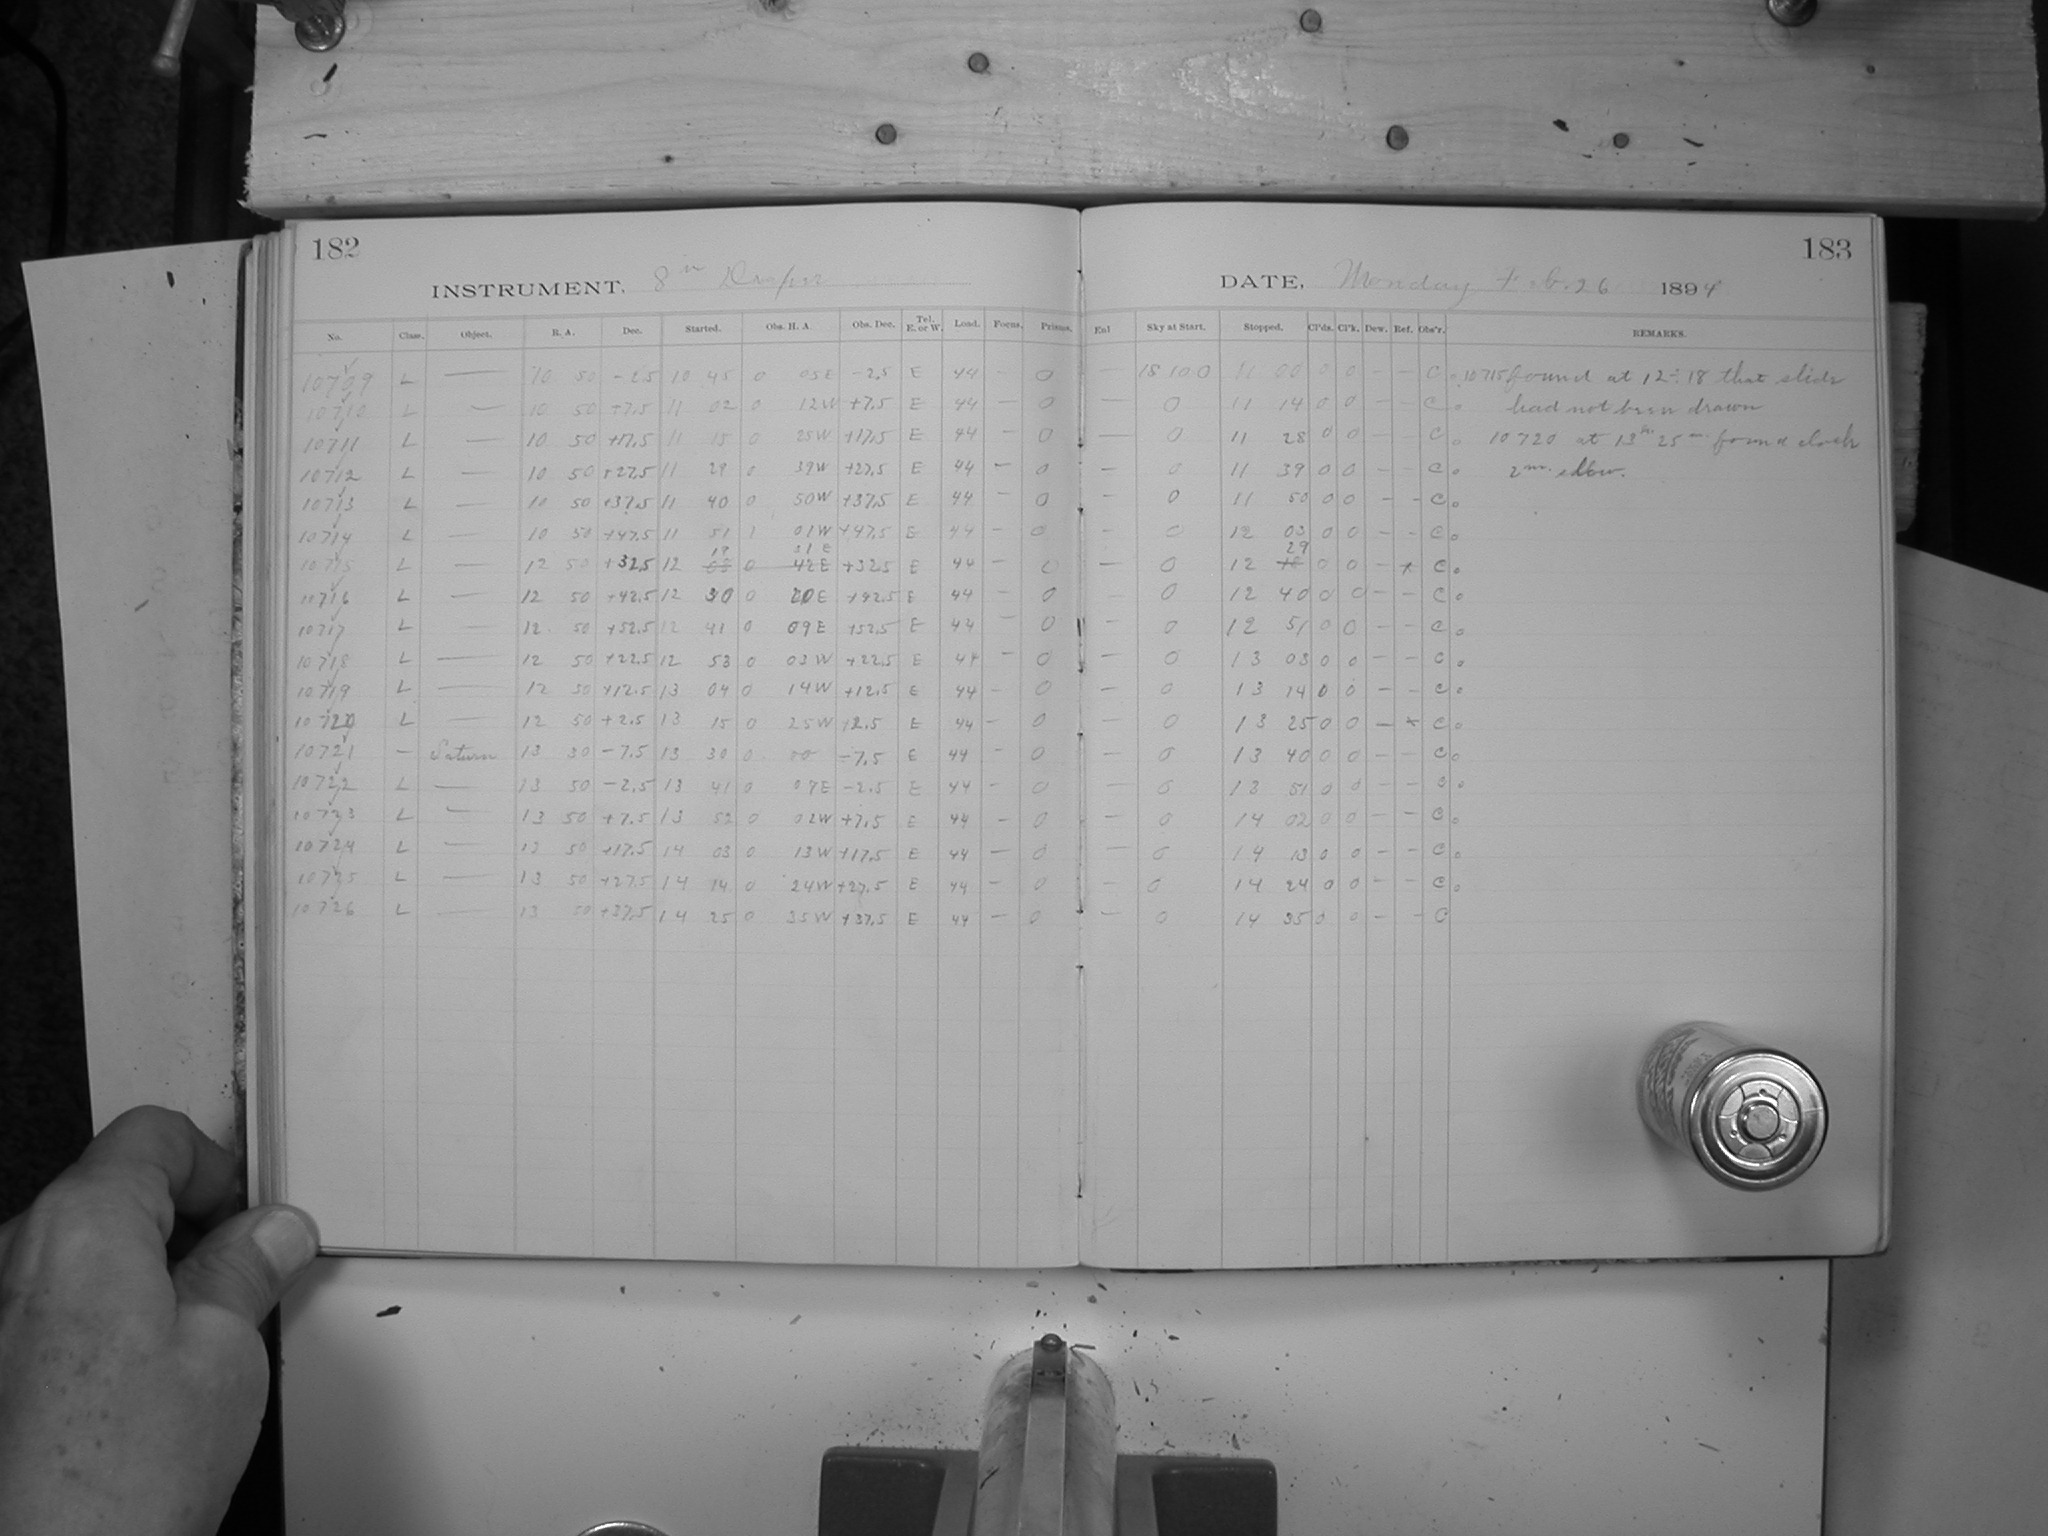 182
INSTRUMENT, 8 in Draper
No. Class. Object. R. A. Dec. Started. Obs. H. A. Obs. Dec. Tel. E. or W. Load. Focus. Prisms.
10709 L — 10 50 -2.5 10 45 0 05E -2.5 E 44 — 0
10710 L — 10 50 +7.5 11 02 0 12W +7.5 E 44 — 0
10711 L — 10 50 +17.5 11 15 0 25W +17.5 E 44 — 0
10712 L — 10 50 +27.5 11 29 0 39W +27.5 E 44 — 0
10713 L — 10 50 +37.5 11 40 0 50W +37.5 E 44 — 0
10714 L — 10 50 +47.5 11 51 1 01W +47.5 E 44 — 0
19 01 E
10715 L — 12 50 +32.5 12 08 0 42E +32.5 E 44 — 0
10716 L — 12 50 +42.5 12 30 0 20E +42.5 E 44 — 0
10717 L — 12 50 +52.5 12 41 0 09E +52.5 E 44 — 0
10718 L — 12 50 +22.5 12 53 0 03W +22.5 E 44 — 0
10719 L — 12 50 +12.5 13 04 0 14W +12.5 E 44 — 0
10720 L — 12 50 +2.5 13 15 0 25W +2.5 E 44 — 0
10721 — Saturn 13 30 -7.5 13 30 0 00 -7.5 E 44 — 0
10722 L — 13 50 -2.5 13 41 0 09E -2.5 E 44 — 0
10723 L — 13 50 +7.5 13 52 0 02W +7.5 E 44 — 0
10724 L — 13 50 +17.5 14 03 0 13W +17.5 E 44 — 0
10725 L — 13 50 +27.5 14 14 0 24W +27.5 E 44 — 0
10726 L — 13 50 +37.5 14 25 0 35W +37.5 E 44 — 0
183
DATE, Monday, Feb. 26 1894
Enl Sky at Start. Stopped. Cl'ds. Cl'k. Dew. Ref. Obs'r. REMARKS.
— 18 10 0 11 00 0 0 — — C 10715 found at 12 18 that slide
— 0 11 14 0 0 — — C had not been drawn
— 0 11 28 0 0 — — C 10720 at 13h 25m found clock
— 0 11 39 0 0 — — C 2m. slow.
— 0 11 50 0 0 — — C
— 0 12 03 0 0 — — C
29
— 0 12 18 0 0 — * C
— 0 12 40 0 0 — — C
— 0 12 51 0 0 — — C
— 0 13 03 0 0 — — C
— 0 13 14 0 0 — — C
— 0 13 25 0 0 — * C
— 0 13 40 0 0 — — C
— 0 13 51 0 0 — — C
— 0 14 02 0 0 — — C
— 0 14 13 0 0 — — C
— 0 14 24 0 0 — — C
— 0 14 35 0 0 — — C